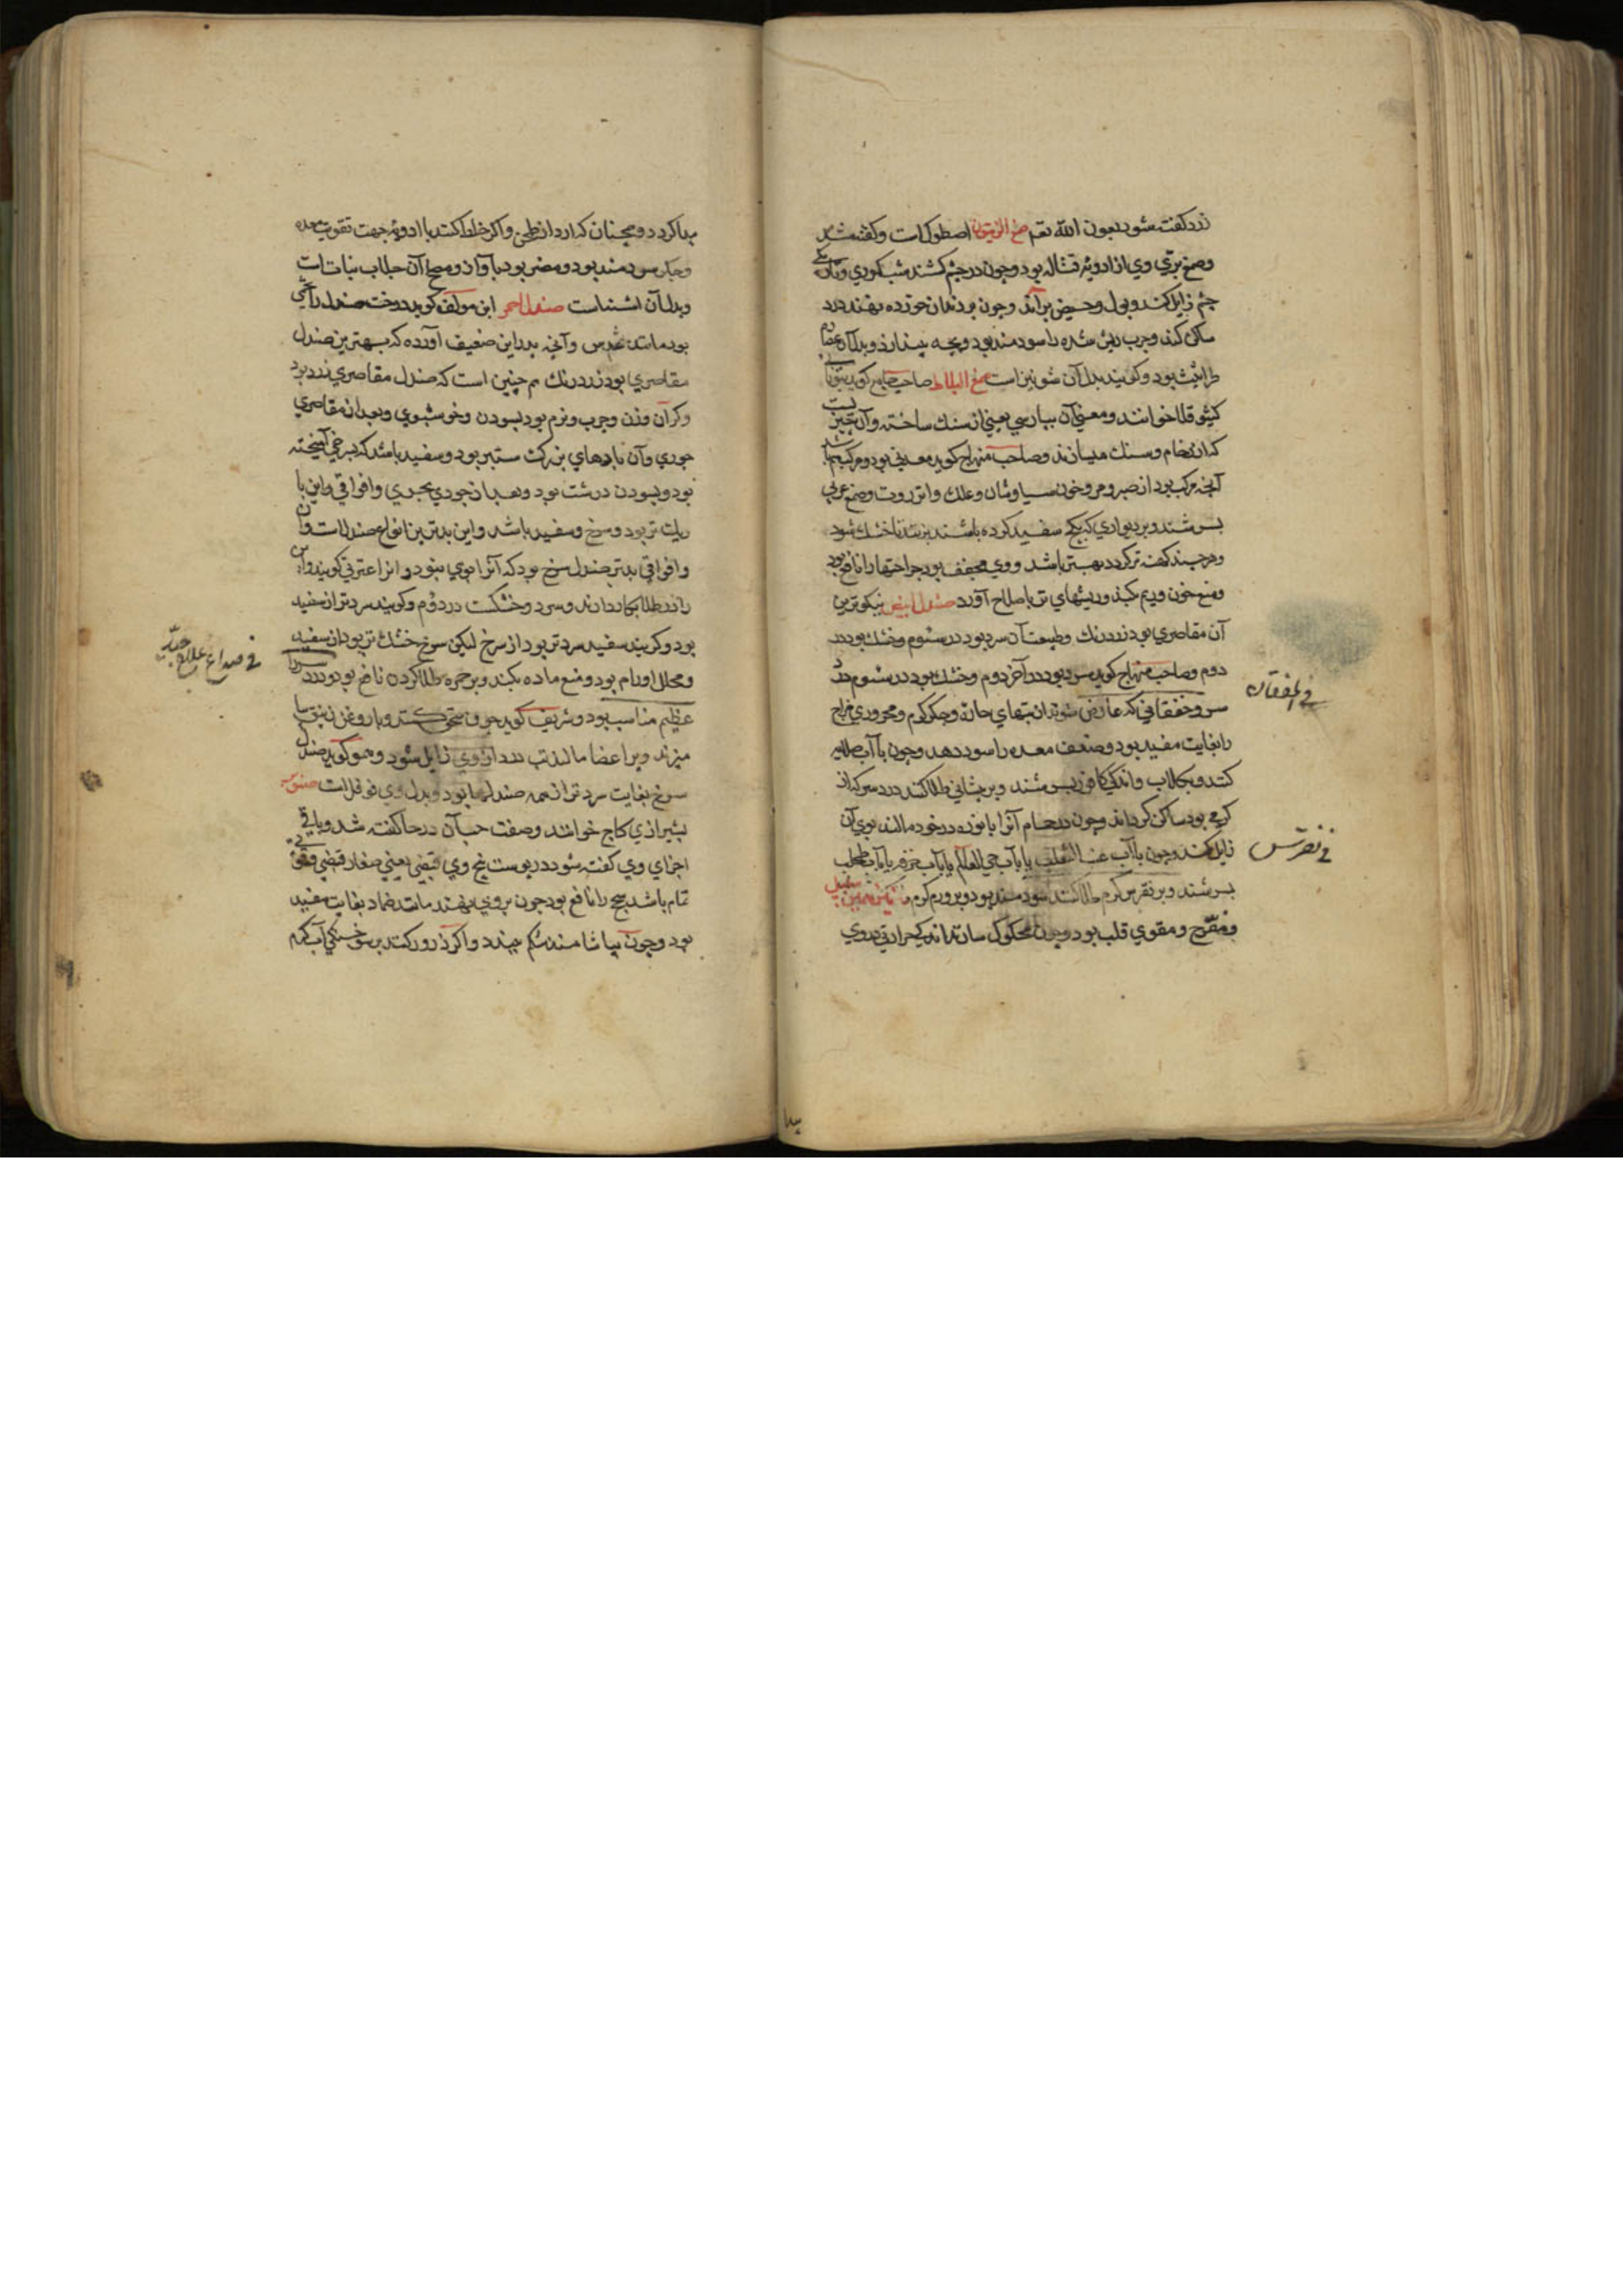 زرد گفته شود بعون الله تعم صمغ الزيتون اصطرك است و گفته شد
و صمغ بري وي از ادويه قتاله بود و چون در چشم کشند شب کوري و تاريکي
چشم زايل کند و بول و حيض براند و چون بر دندان خورده نهند درد
ساکن کند و جرب ريش شده را سودمند بود و بچه بيندازد و بدل آن
طراثيث بود و گويند بدل آن شونيز است صمغ البلاط صاحب جامع گويد بيوناني
کيثو قلا خوانند و معني آن بپارسي يعني از سنك ساخته و آن چيزيست
که از رخام و سنك ميسازند و صاحب منهاج گويد معدني بود و مرکب هم باشد
آنچه مرکب بود از صبر و مر و خون سياوشان و علك و انزروت و صمغ عربي
بسرشند و بر ديواري که بگچ سفيد کرده باشند بزنند تا خشك شود
و هر چند کهنه تر گردد بهتر باشد و وي مجفف بود جراحتها را نافع بود
و منع خون و ريم بکند و ريشهاي تر باصلاح آورد صندل ابيض نيکوترين
آن مقاصري بود زرد رنك و طبيعت آن سرد بود در سوم و خشك بود در
دوم و صاحب منهاج گويد سرد بود در آخر دوم و خشك بود در سوم درد
سر و خفقاني که عارض شود از تبهاي حاره و جگر گرم و محروري مزاج
را بغايت مفيد بود و ضعف معده را سود دهد و چون با آب طلا
کنند و بگلاب و اندکي کافور بسرشند و بر پيشاني طلا کنند درد سر که از
گرمي بود ساکن گرداند و چون در حمام آنرا با نوره در خود مالند بوي آن
زايل کند و چون با آب عنب الثعلب يا با آب حي العالم يا با آب خرفه يا با آب طحلب
بسرشند و بر نقرس گرم طلا کنند سودمند بود و بر ورم گرم
و مفرح و مقوي قلب بود و چون محکوك سازند اندك حرارتي در وي
في الخفقان
في نقرس
پيدا
پيدا گردد و همچنان که ارد از طحن و اگر خلط کنند با ادويه جهت تقويت معده
و جگر سودمند بود و مضر بود بآواز و مصلح آن جلاب نبات است
و بدل آن اشنه است صندل احمر ابن مولف گويد درخت صندل را
بود مانند عدس و آنچه بدر اين ضعيف آورده که بهترين صندل
مقاصري بود زرد رنك هم چنين است که صندل مقاصري زرد بود
و گران وزن و چرب و نرم بود بسودن و خوشبوي و بعد از مقاصري
جوري و آن پارهاي بزرك ستبر بود و سفيد باشد که بسرخي آميخته
بود و بسودن درشت بود و بعد از جوري و افراقي و اين با
ريك تر بود و سرخ و سفيد باشد و اين بدترين انواع صندل است و از
و افراقي بدتر صندل سرخ بود که آنرا بوي نبود و
را در طلا بکار دارند و سرد و خشکست در دوم و گويند سردتر از سفيد
بود و گويند سفيد سردتر بود از سرخ ليکن سرخ خشك تر بود از سفيد
و محلل اورام بود و منع ماده بکند و بر حمره طلا کردن نافع بود و درد سر را
عظيم مناسب بود و شريف گويد چون سحق کنند و با روغن زنبق
ميزند و بر اعضا مالند تب درد از وي زايل شود و هم او گويد صندل
سرخ بغايت سردتر از همه صندلها بود و بدل وي فوفل است صنوبر
بشيرازي کاج خوانند و صفت حب آن در حا گفته شد و باقي
اجزاي وي گفته شود در پوست بيخ وي قبضي يعني صغار قبضي و قوتي
تمام باشد سحج را نافع بود چون بر وي نهند مانند ضماد بغايت مفيد
بود و چون بياشامند شکم ببندد و اگر ذرور کنند بر سوختگي آب گرم
في صداع علاج